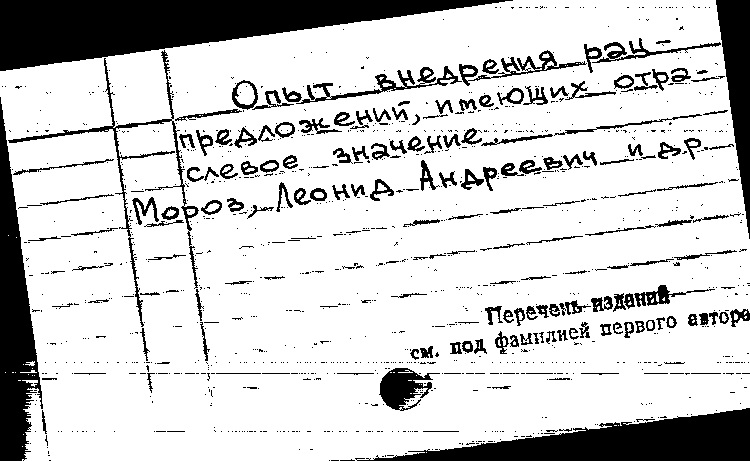 Опыт внедрения рац-
предложений, имеющих отра-
слевое значение..
Мороз, Леонид Андреевич и др.
Перечень изданий
см. под фамилией первого автора